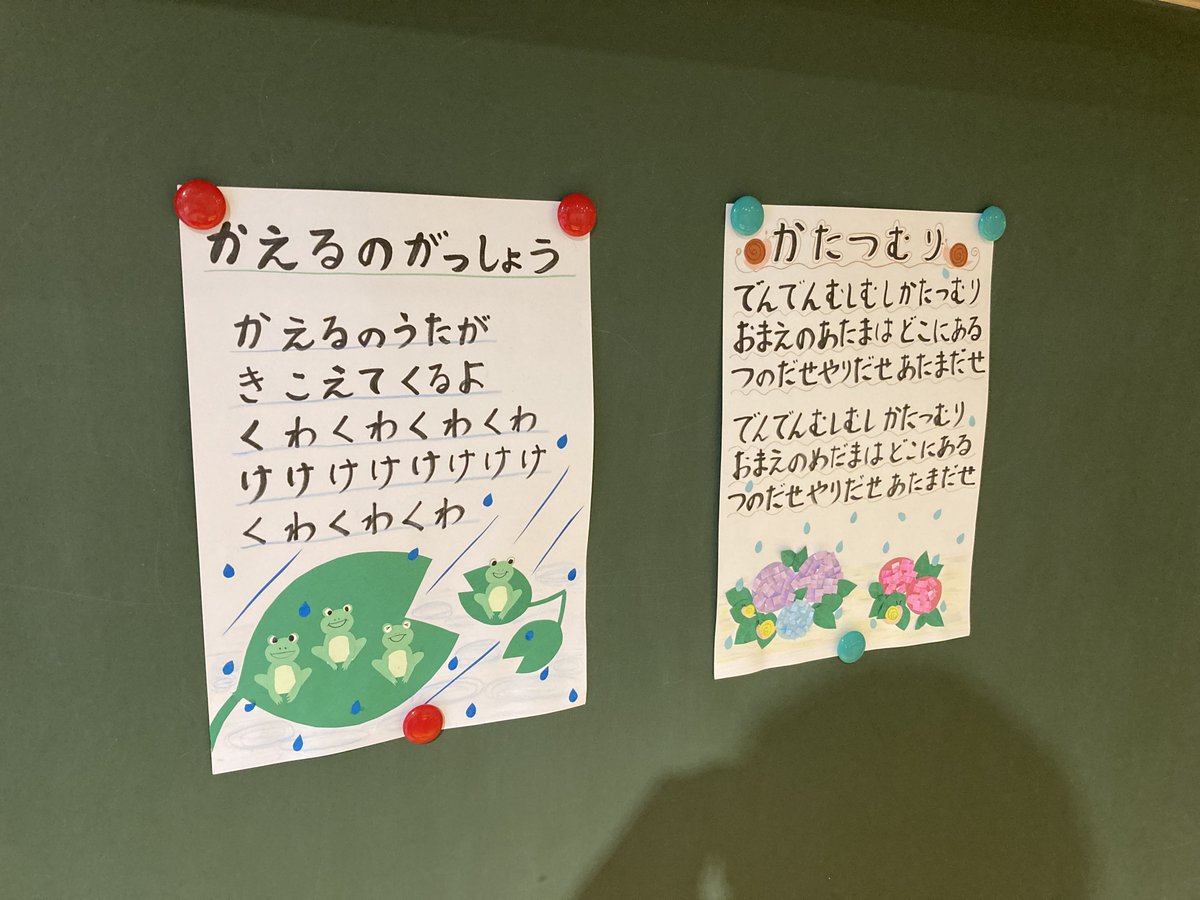 かえるのがっしょう
かえるのうたが
きこえてくるよ
くわくわくわくわ
けけけけけけけけ
くわくわくわ
かたつむり
でんでんむしむしかたつむり
おまえのあたまは どこにある
つのだせやりだせ あたまだせ
でんでんむしむし かたつむり
おまえのめだまは どこにある
つのだせやりだせ あたまだせ